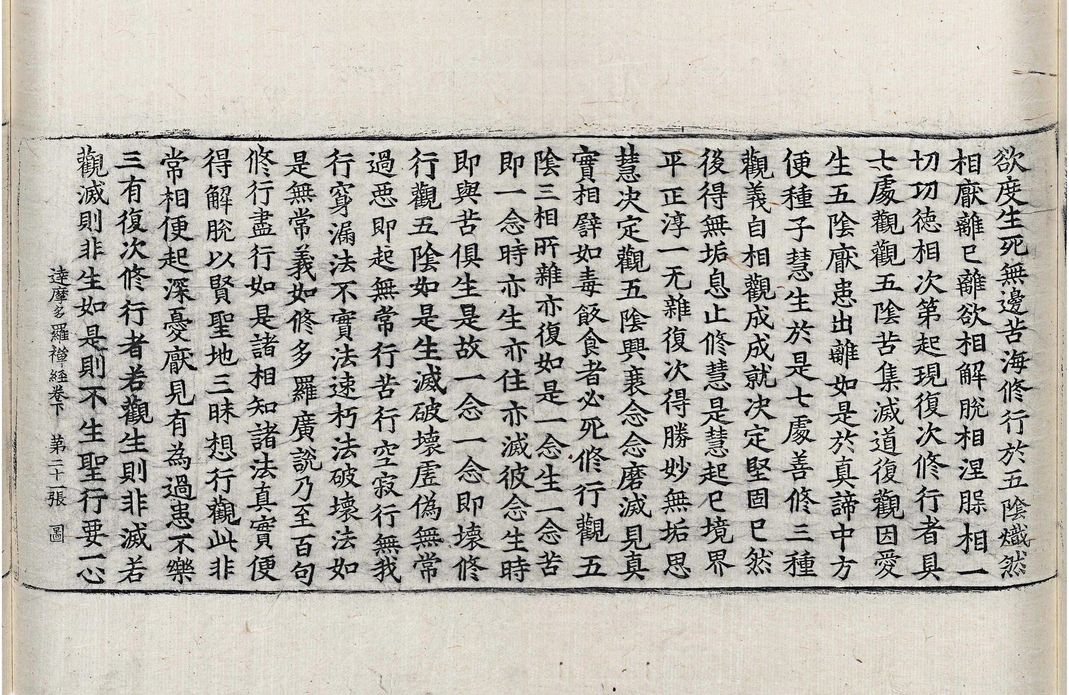 欲度生死無邊苦海修行於五陰熾然
相厭離已離欲相解脫相涅槃相一
切功德相次第起現復次修行者具
七處觀觀五陰苦集滅道復觀因愛
生五陰厭患出離如是於真諦中方
便種子慧生於是七處善修三種
觀義自相觀成成就決定堅固已然
後得無垢息止修慧是慧起已境界
平正淳一无雜復次得勝妙無垢思
慧決定觀五陰興衰念念磨滅見真
實相譬如毒飯食者必死修行觀五
陰三相所雜亦復如是一念生一念苦
即一念時亦生亦住亦滅彼念生時
即與苦俱生是故一念一念即壞修
行觀五陰如是生滅破壞虛偽無常
過惡即起無常行苦行空寂行無我
行窮漏法不實法速朽法破壞法如
是無常義如修多羅廣說乃至百句
修行盡行如是諸相知諸法真實便
得解脫以賢聖地三昧想行觀此非
常相便起深憂厭見有為過患不樂
三有復次修行者若觀生則非滅若
觀滅則非生如是則不生聖行要一心
達摩多羅禪經卷下 第二十一張 圖